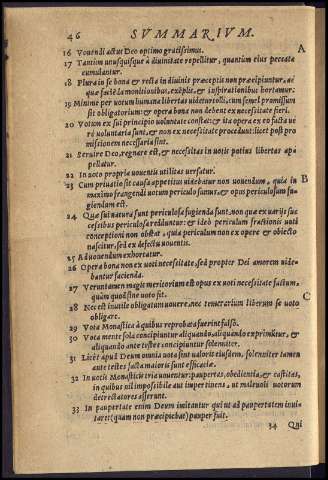 46 SVMMARIVM.
16 Vouendi actus Deo optimo gratissimus. A
17 Tantùm unusquisque à diuinitate repellitur, quantùm eius peccata
cumulantur.
18 Plura in se bona & recta in diuinis præceptis non præcipiuntur, ad
quæ facièda monitionibus, exēplis, & inspirationibus hortamur.
19 Minimè per uotum humana libertas uidetur tolli, cum semel promissum
sit obligatorium: & opera bona non debent ex necessitate fieri.
20 Votum ex sui principio voluntate constat: & ita opera ex eo facta ue
rè voluntaria sunt, & non ex necessitate procedunt: licet post pro
missionem necessaria sint.
21 Seruire Deo, regnare est, & necessitas in uotis potius libertas ap
pellatur.
22 In uoto propria uouentis utilitas uersatur.
23 Cum priuatio sit causa appetitus uidebatur non uouendum, quia in B
maximo frangendi uotum periculo sumus, & opus periculosum fu
giendum est.
24 Quæ sui natura sunt periculosa fugienda sunt, non quæ ex uarijs suc
cessibus periculosa redduntur: & ideo periculum fractionis uoti
conceptioni non obstat, quia periculum non ex opere & obiecto
nascitur, sed ex defectu uouentis.
25 Ad uouendum exhortatur.
26 Opera bona non ex uoti necessitate, sed propter Dei amorem uide-
bantur facienda.
27 Veruntamen magis meritorium est opus ex uoti necessitate factum,
quàm quod sine uoto fit. C
28 Nec est inutile obligatum uouere, nec temerarium liberum se uoto
obligare.
29 Vota Monastica à quibus reprobata fuerint falsò.
30 Vota mente sola concipiuntur aliquando, aliquando exprimūtur, &
aliquando ante testes concipiuntur solenniter.
31 Licèt apud Deum omnia uota sint ualoris eiusdem, solenniter tamen
ante testes facta maioris sunt efficaciæ.
32 In uotis Monasticis tria uouentur: paupertas, obedientia, & castitas,
in quibus nil impossibile aut impertinens, ut maleuoli uotorum
detrectatores asserunt.
33 In paupertate enim Deum imitantur qui ut ad paupertatem inui-
taret (quam non præcipiebat) pauper fuit.
34 Qui